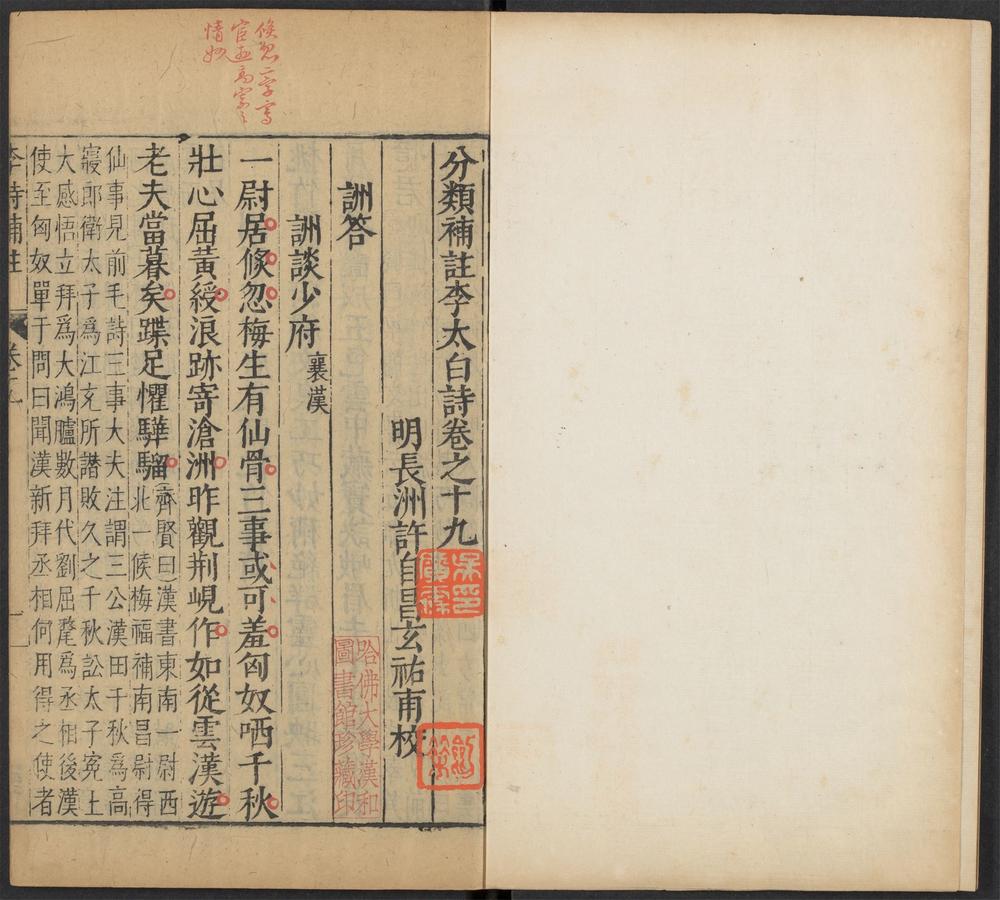 分類補註李太白詩卷之十九
明長洲許自昌玄祐甫校
詶答
詶談少府 襄漢
一尉居倐忽梅生有仙骨三事或可羞匈奴哂千秋
壯心屈黃綬浪跡寄滄洲昨觀荆峴作如從雲漢遊
老夫當暮矣蹀足懼驊騮
齊賢曰漢書東南一尉西
北一候梅福補南昌尉得
仙事見前毛詩三事大夫注謂三公漢田千秋爲高
寢郎衛太子爲江充所譖敗久之千秋訟太子寃上
大感悟立拜爲大鴻臚數月代劉屈氂爲丞相後漢
使至匈奴單于問曰聞漢新拜丞相何用得之使者
李詩補註
卷十九
一
倐忽二字寫
哈佛大學漢和
圖書館珍藏印